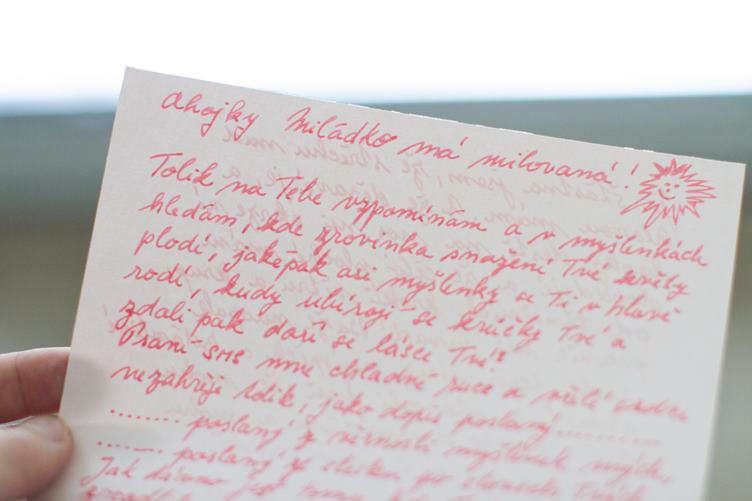 Ahojky Miládko má milovaná!
Tolik na Tebe vzpomínám a v myšlenkách
hledám, kde zrovinka snažení Tvé květy
plodí, jaképak asi myšlenky se Ti v hlavě
rodí, kudy ubírají se krůčky Tvé a
zdali pak daří se lásce Tvé!
Psaní SMS mne chladné ruce a
nezahřeje tolik, jako dopis poslaný..........
........ poslaný z věrnosti myšlenek mých,
....... poslaný ze stesku po
Jak dávno